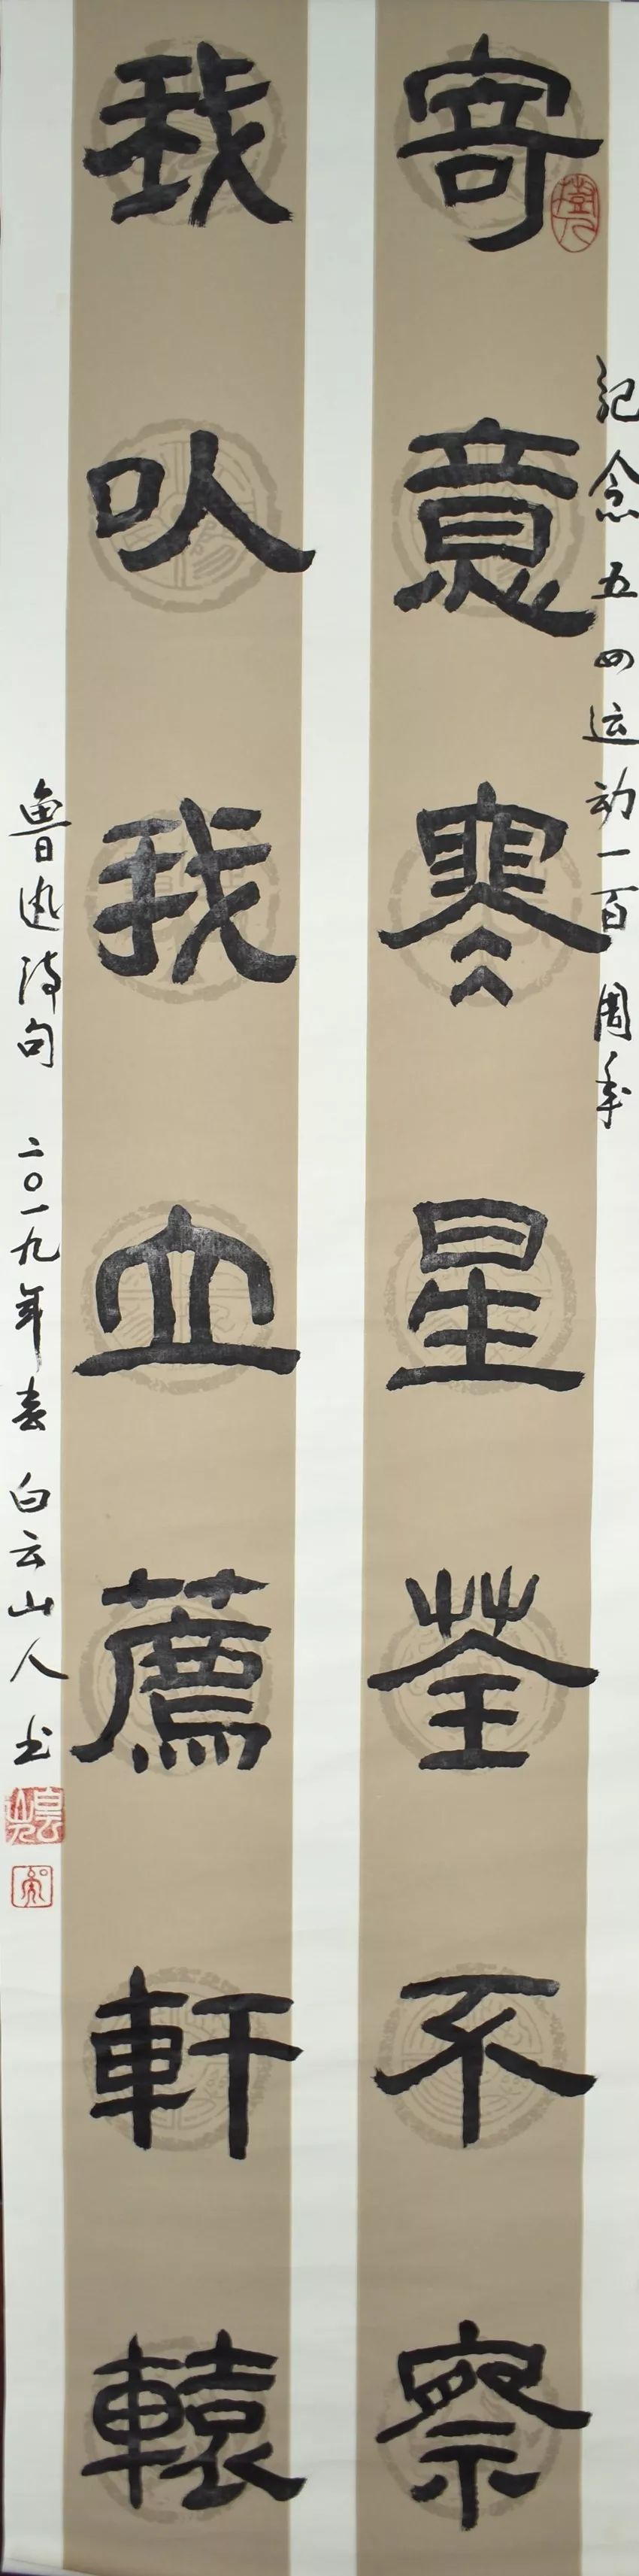 纪念五四运动一百周年
寄意寒星荃不察
我㕥我血薦軒轅
魯迅诗句 二〇一九年春 白云山人书